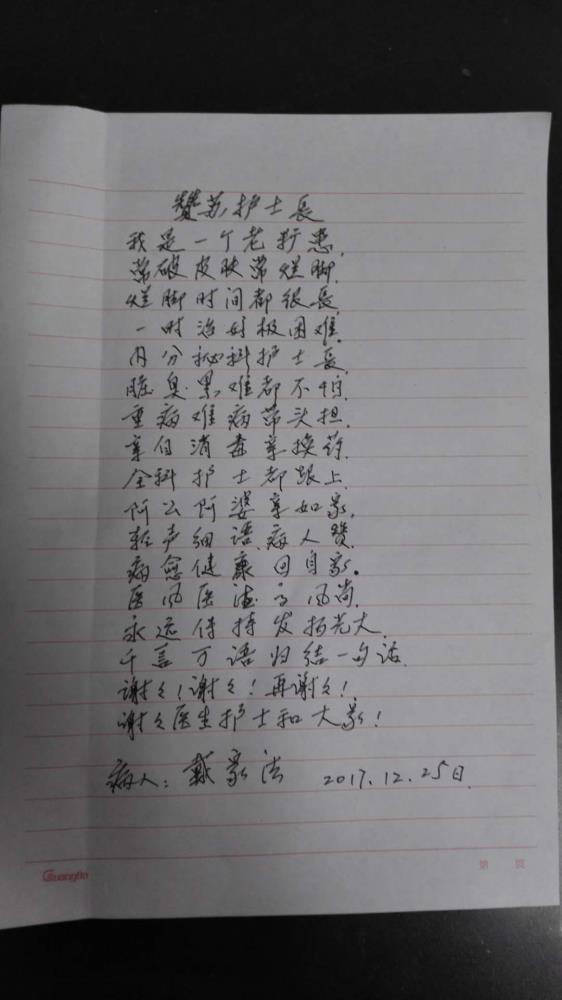 赞苏护士長
我是一个老疗患,
常破皮肤常烂脚,
烂脚时间都很長,
一时治好极困难。
内分秘科护士長,
脏臭累难都不怕,
重病难病带头担,
亲自消毒亲换药,
全科护士都跟上,
阿公阿婆亲如家,
轻声细语病人赞,
病愈健康回自家。
医风医德高风尚,
永远保持发扬光大,
千言万语归结一句话,
谢々!谢々!再谢々!
谢々医生护士和大家!
病人:戴家法 2017.12.25日
Guangbo
第 页